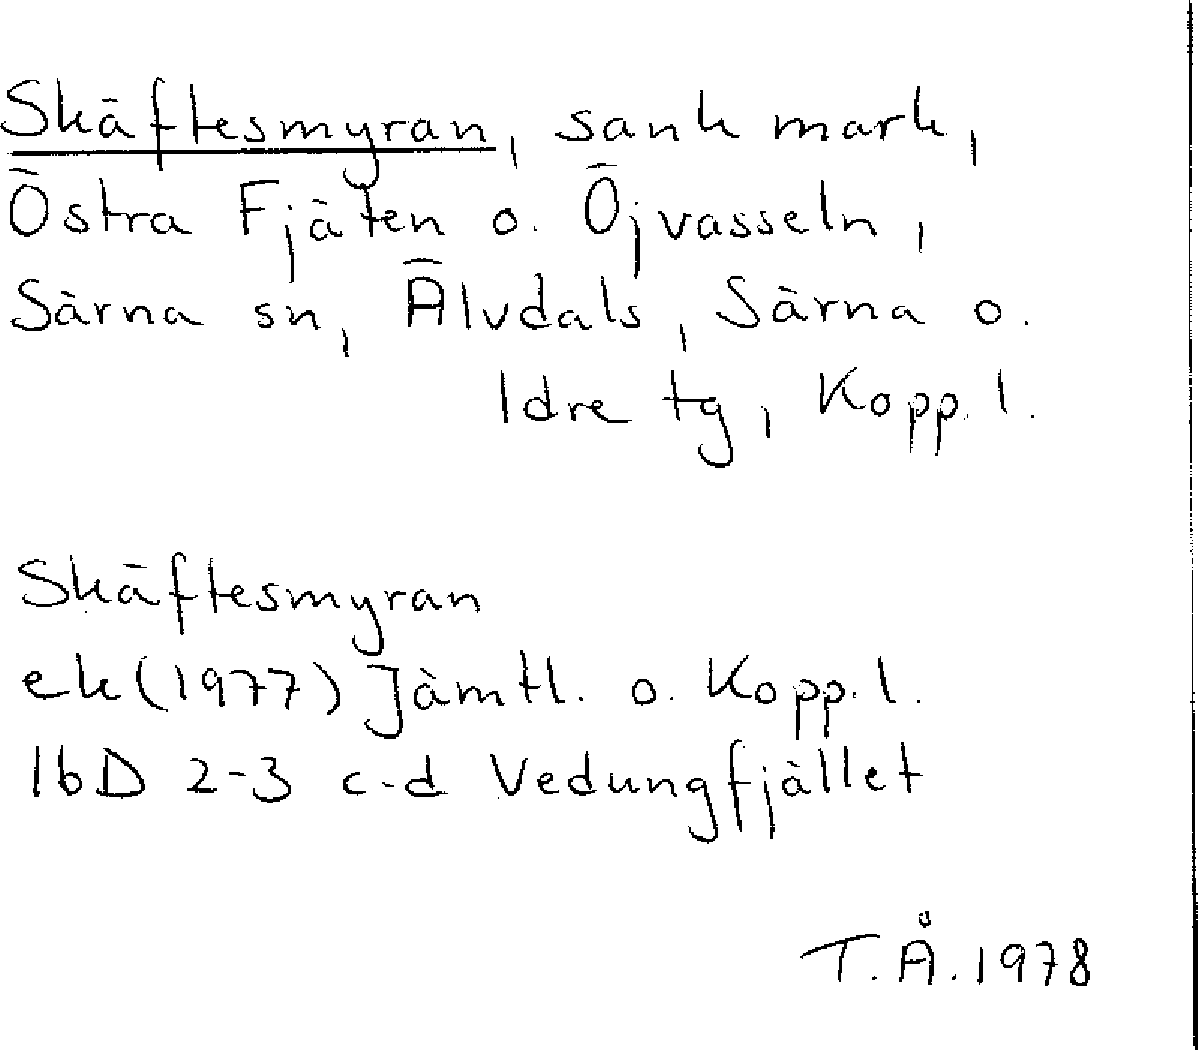 Skäftesmyran, sank mark,
Östra Fjäten o. Öjvasseln,
Särna sn, Älvdals, Särna o.
Idre tg, Kopp. l.
Skäftesmyran
ek (1977) Jämtl. o. Kopp. l.
16D 2-3 c-d Vedungfjället
T.Å. 1978